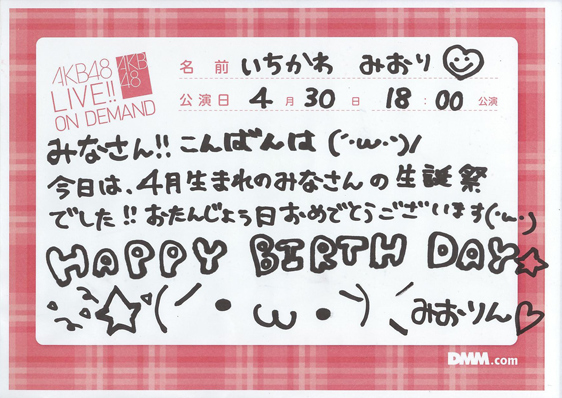 AKB48
LIVE!!
ON DEMAND
AKB
48
名前 いちかわ みおり
公演日 4月30日 18:00公演
みなさん!! こんばんは(´･ω･`)/
今日は、4月生まれのみなさんの生誕祭
でした!! おたんじょう日おめでとうございます(･ω･)
HAPPY BIRTH DAY☆
☆(´･ω･`) みおりん♡
DMM.com